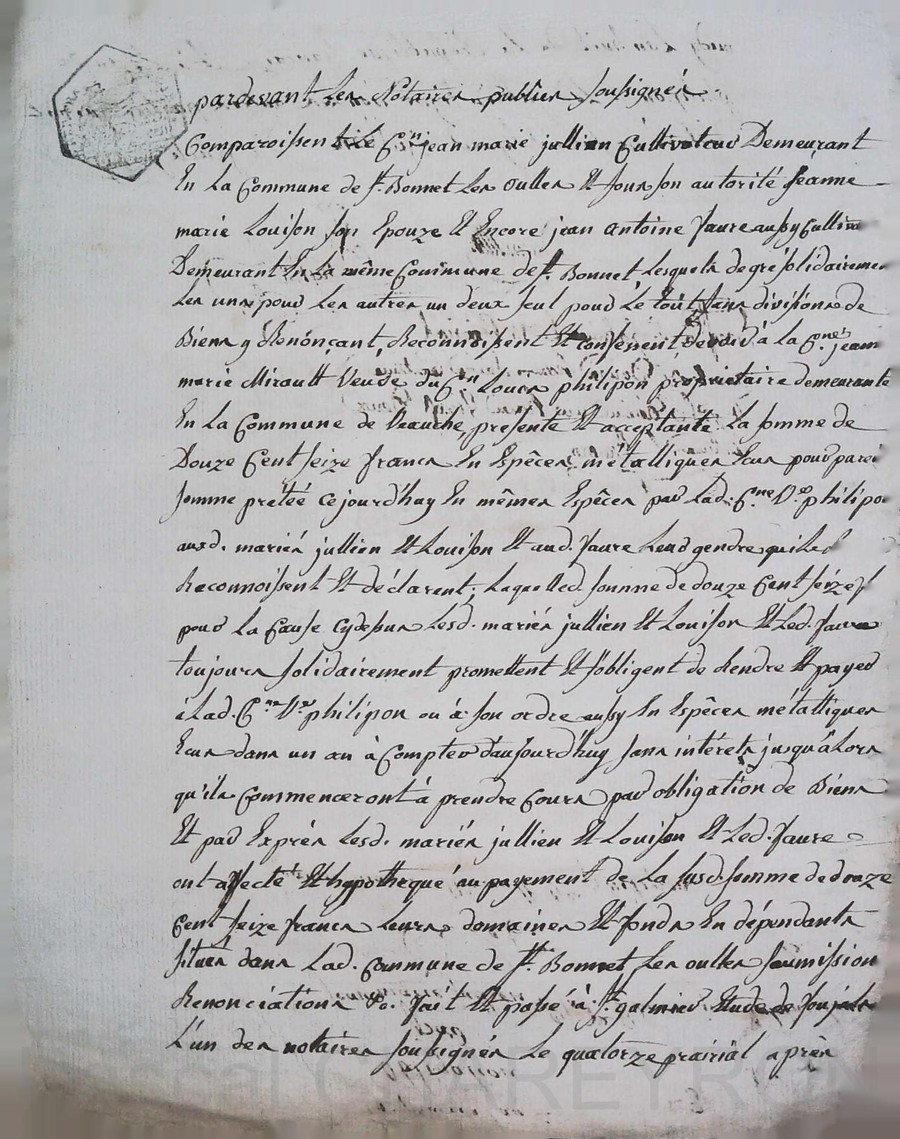 pardevant les Notaires publics soussignés
Comparoissent le C.en jean marie jullien Cultivateur Demeurant
En la Commune de St. Bonnet les oulles Et sous son autorité jeanne
marie Louison son Epouze Et Encore jean antoine faure aussy Cultiva
Demeurant En la même Commune de st. Bonnet, lesquels de gré solidairemen
les uns pour les autres un deux seul pour le tout sans divisions de
Biens y Renonçant, Reconnoissent Et confessent devoir à la C.ne jeanne
marie Mirault Veuve du C.en Louis philipon proprietaire demeurante
En la Commune de Veauche, presente Et acceptante la somme de
Douze Cent seize francs En Espêces métalliques Ecus pour pareil
somme pretée cejourd'huy En mêmes Espêces par Lad. C.ne V.e philipon
aud. mariés jullien Et Louison Et aud. faure leur gendre qu'ils
Reconnoissent Et déclarent, laquelled. somme de douze Cent seize f
pour la Cause cydessus lesd. mariés jullien Et Louison Et Led. faure
toujours solidairement promettent Et s'obligent de Rendre Et payer
à Lad. C.ne V.e philipon ou à son ordre aussy En Espêces métalliques
Ecus dans un an à Compter d'aujourd'huy sans intérets jusqu'alors
qu'ils Commenceront à prendre Cours par obligation de Biens
Et par Exprès lesd. mariés jullien Et Louison Et Led. faure
ont affecté Et hypotheque au payement de La susd. somme de douze
Cent seize francs leurs domaines Et fonds En dépendants
situés dans Lad. Commune de St. Bonnet les oulles soumission
Renonciations &c. fait Et passé à St. galmier Etude de
L'un des notaires soussignés Le quatorze prairial après